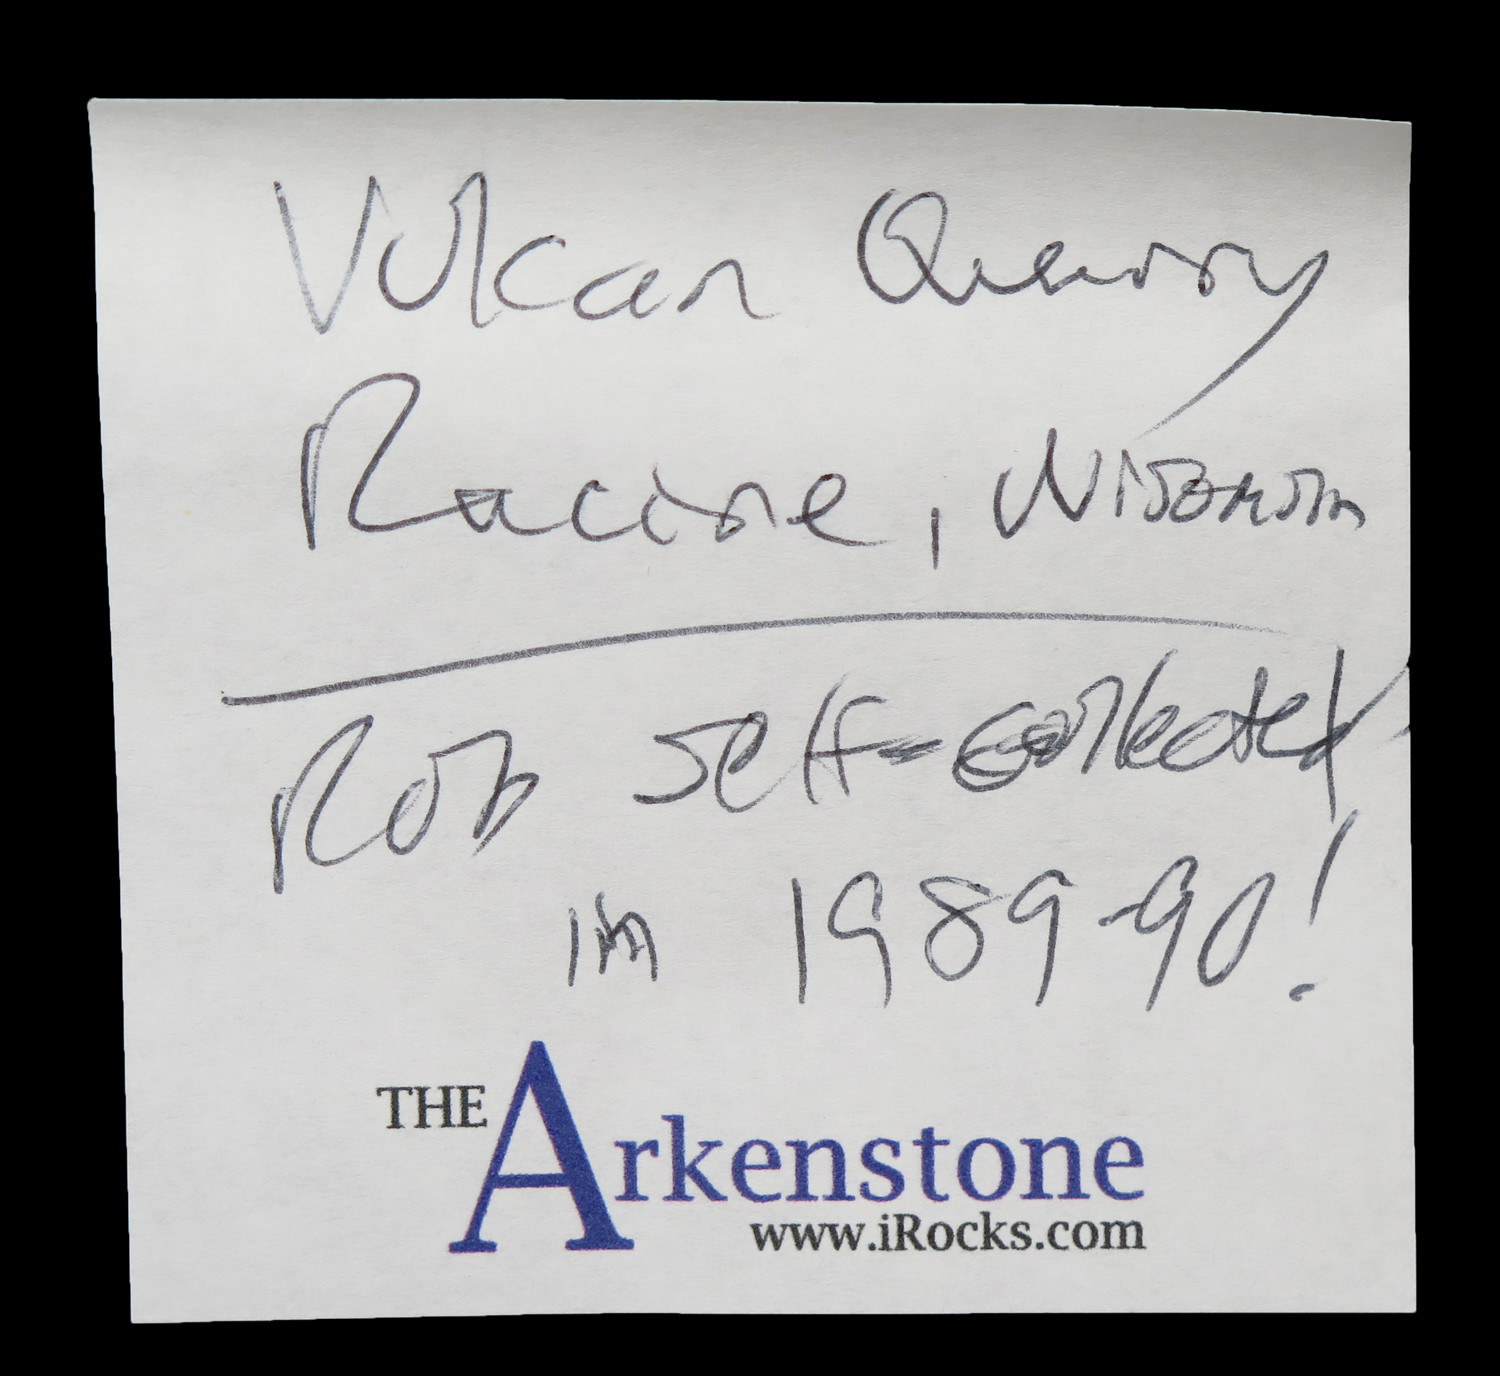 Vulcan Quarry
Racine, Wisconsin
Rob self-collected
in 1989-90!
THE Arkenstone
www.iRocks.com